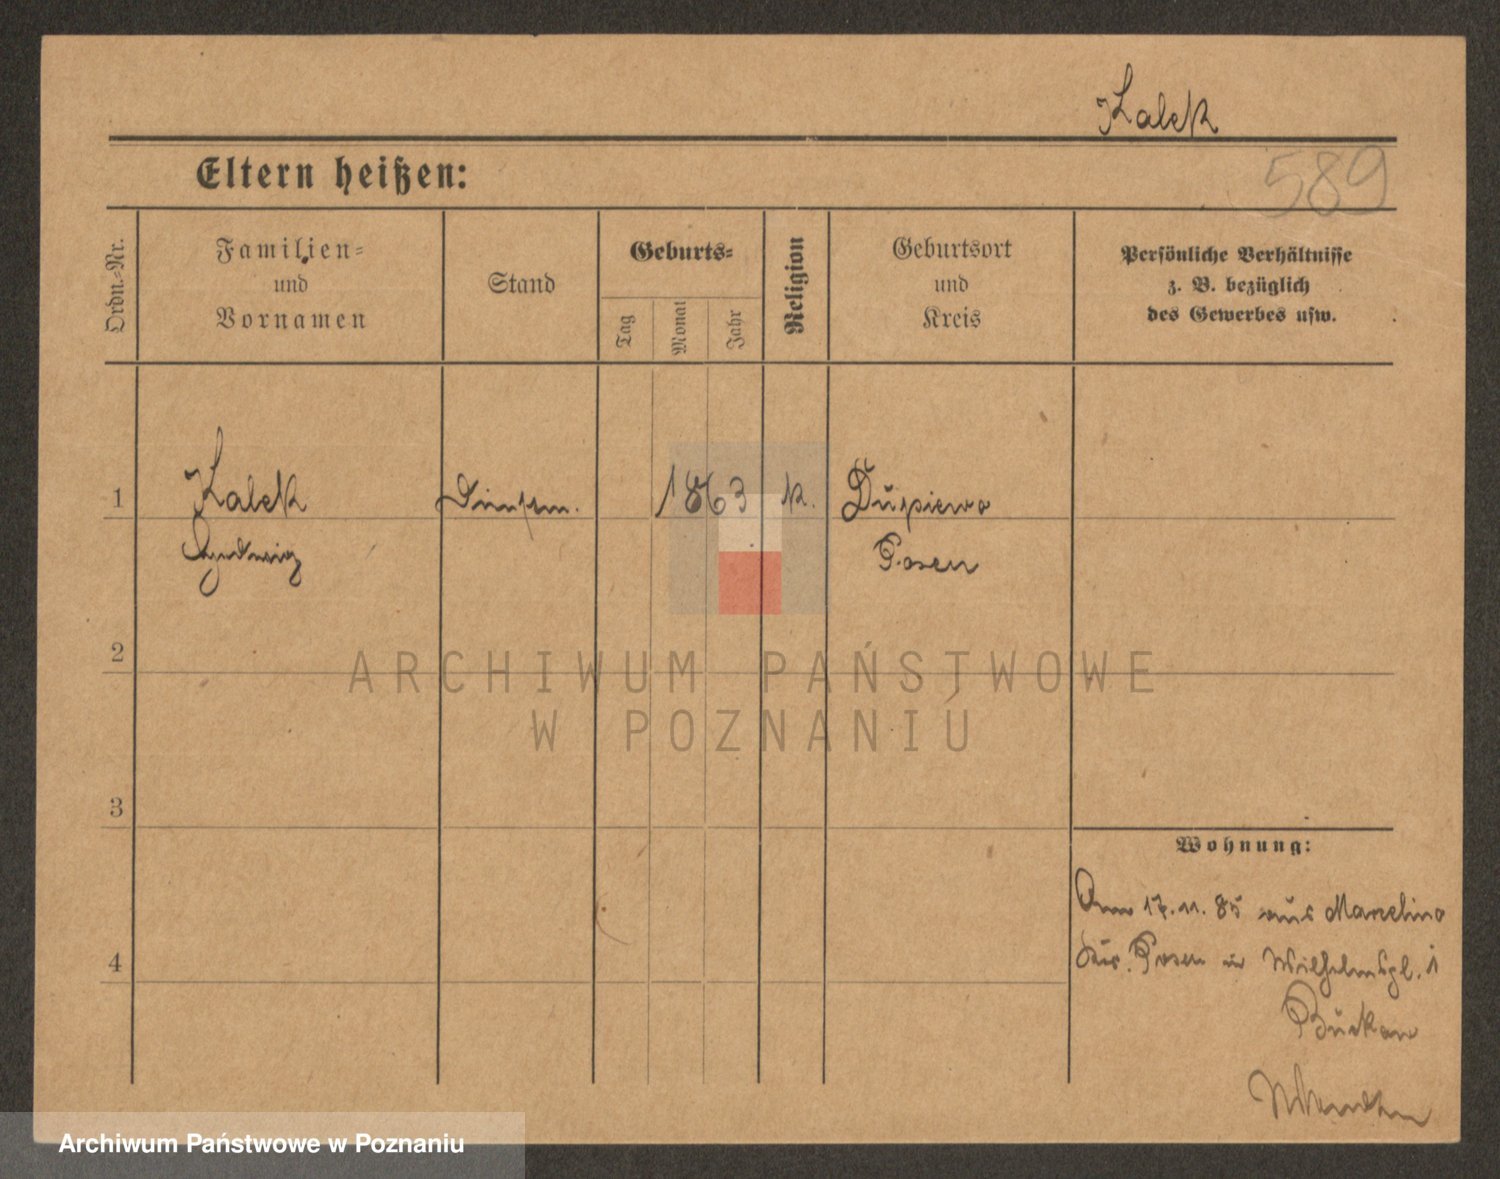 Kalek
589
Eltern heißen:
Ordn.-Nr.
Familien-
und
Vornamen
Stand
Geburts-
Tag
Monat
Jahr
Religion
Geburtsort
und
Kreis
Persönliche Verhältnisse
z. B. bezüglich
des Gewerbes usw.
1
Kalek
1863
k.
Posen
2
ARCHIWUM PAŃSTWOWE
W POZNANIU
3
Wohnung:
17.11.85 aus Marcelino
Posen in Wilhelmspl. 1
4
Archiwum Państwowe w Poznaniu